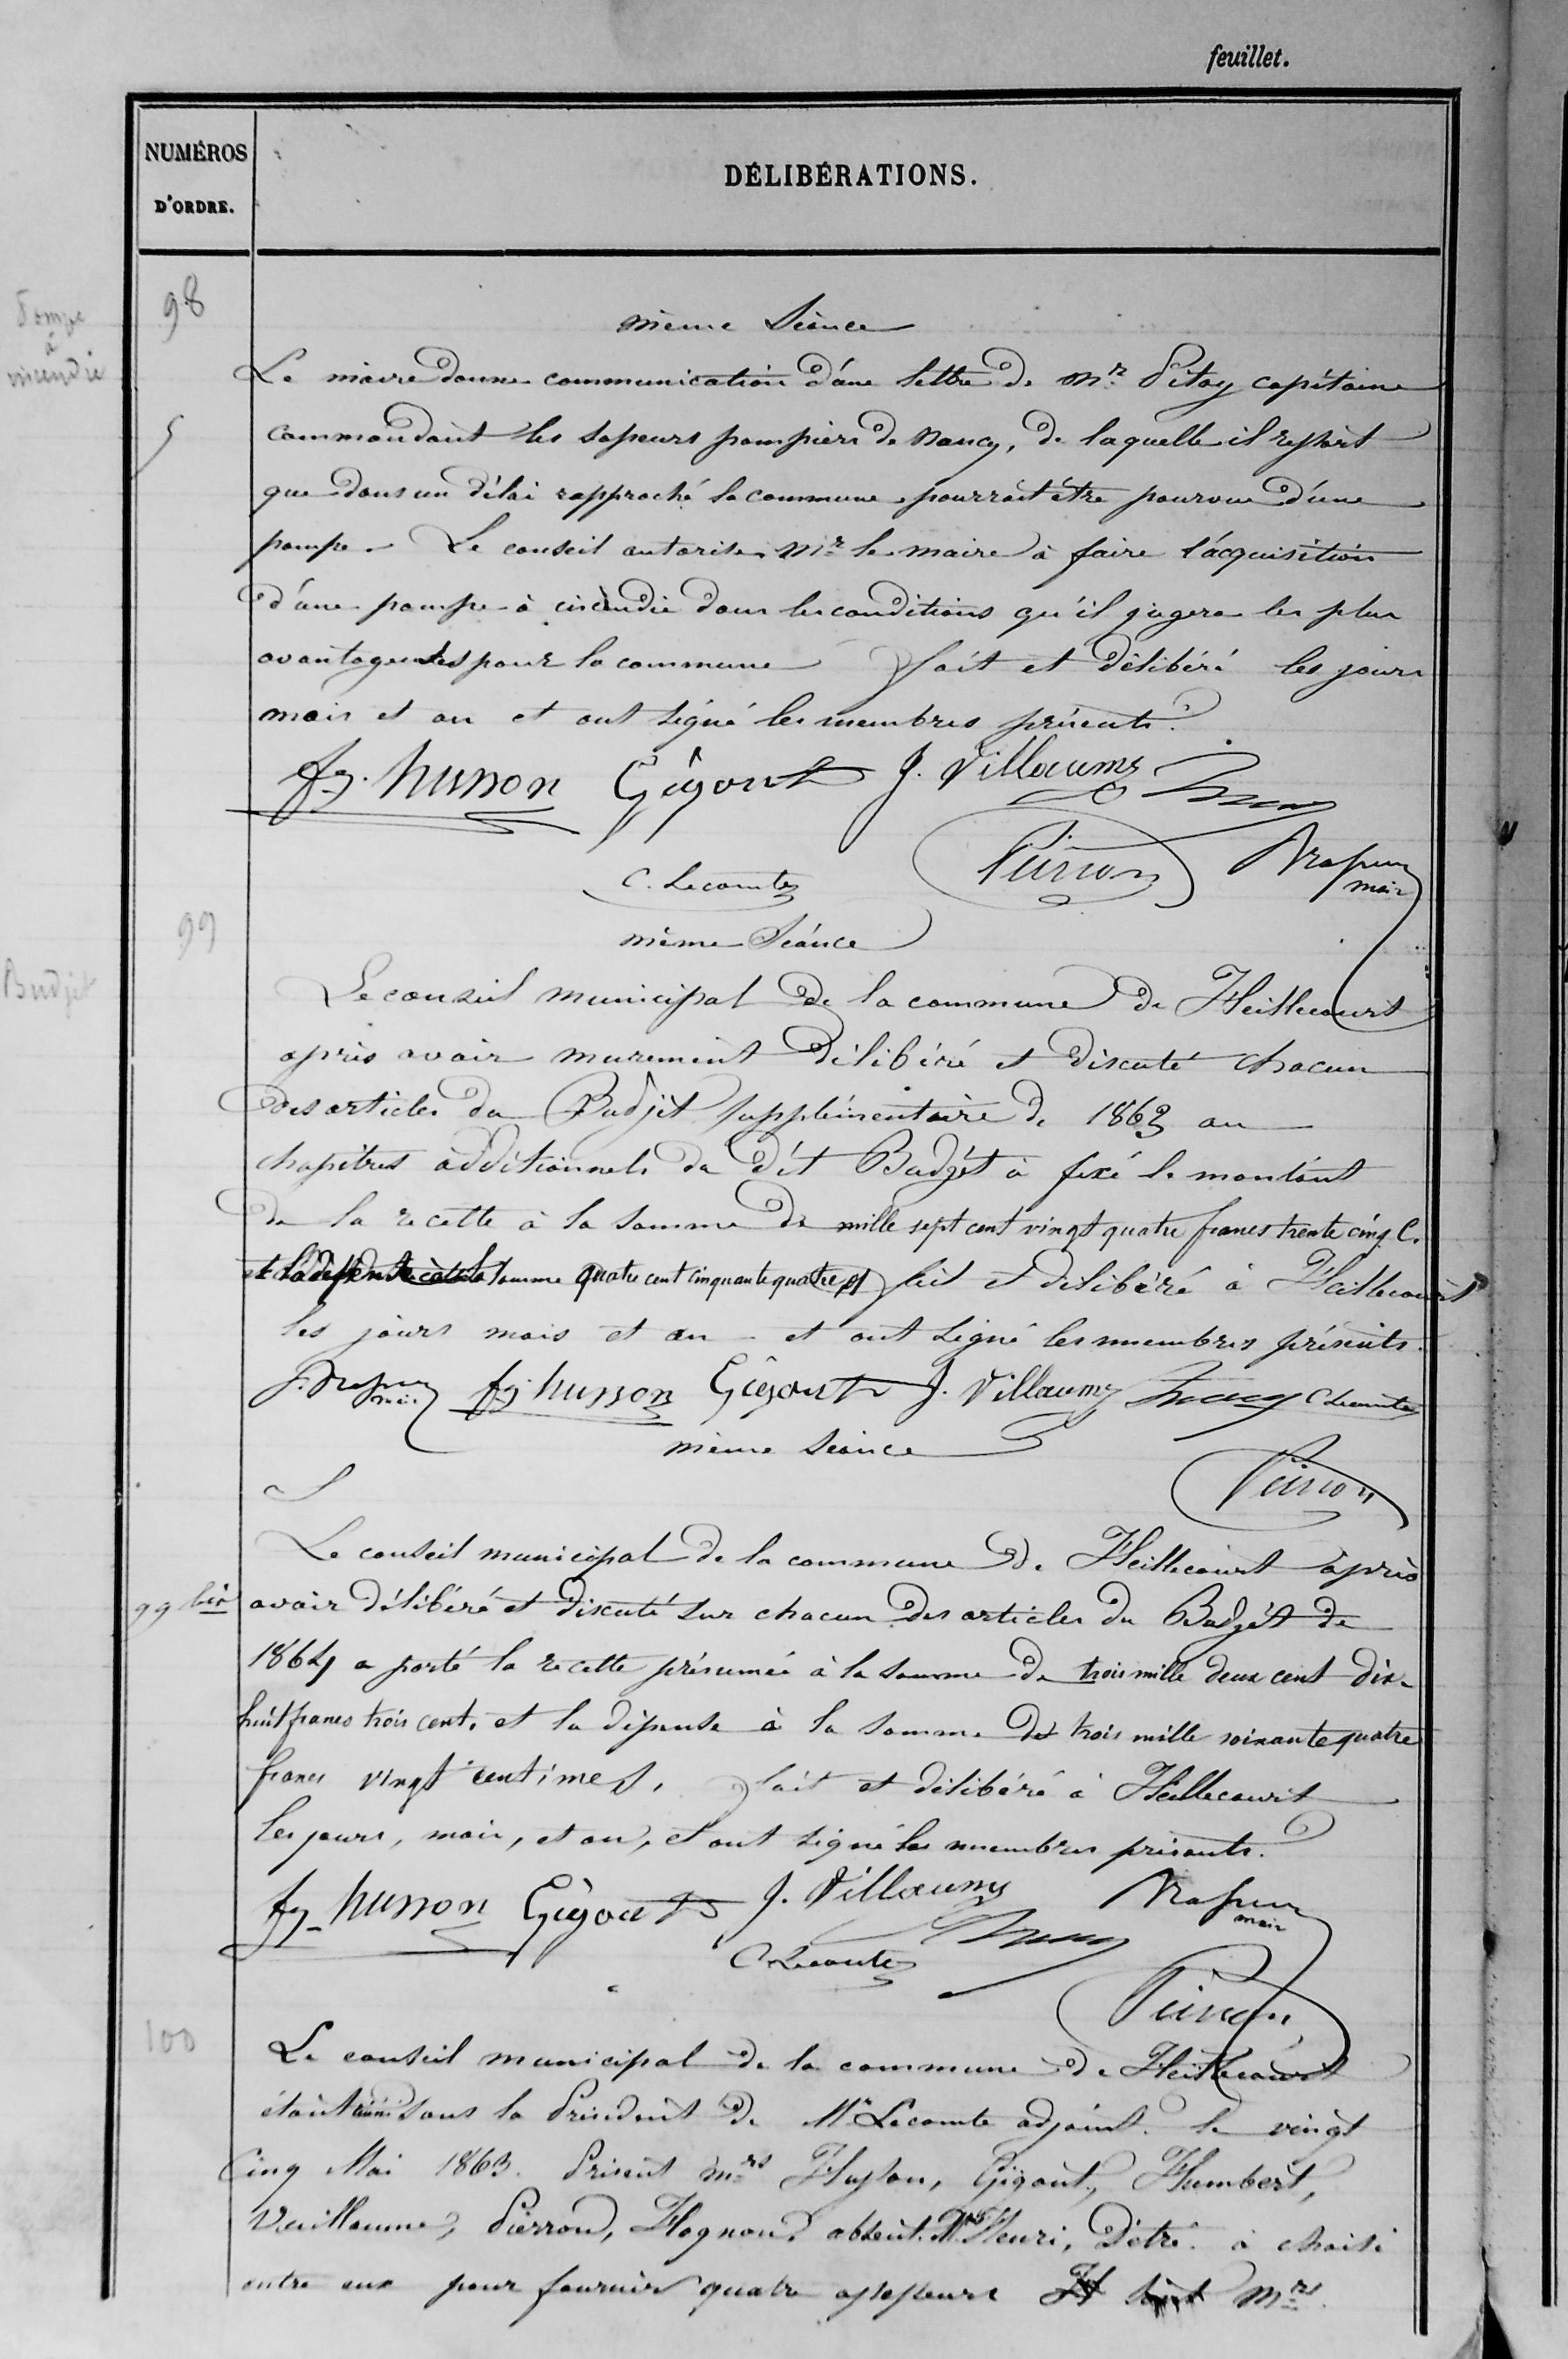 feuillet.
NUMÉROS
D'ORDRE.
DÉLIBÉRATIONS.
Pompe
à
incendie
98
même Séance
Le maire donne communication d'une lettre de Mr. Pitoy capitaine
commandant les sapeurs pompiers de Nancy, de laquelle il ressort
que dans un délai rapproché la commune pourrait être pourvue d'une
pompe. Le conseil autorise Mr le maire à faire l'acquisition
d'une pompe à incendie dans les conditions qu'il jugera les plus
avantageuses pour la commune fait et délibéré les jours
mois et an et ont signé les membres présents.
fs. husson Gigout J. Villaume
C. Lecomte Pierron
maire
99
même Séance
Budjet
Le conseil municipal de la commune de Heillecourt
après avoir murement délibéré et discuté chacun
des articles du Budjèt supplémentaire de 1863 au
chapitres additionnels du dit Budgèt à fixé le montant
de la recette à la somme de mille sept cent vingt quatre francs trente cinq C.
et la dépense à la somme quatre cent cinquante quatre fait et délibéré à Heillecourt
les jours mois et an et ont signé les membres présents.
maire fs. husson Gigout J. Villaume C Lecomte
même séance
Pierron
Le conseil municipal de la commune de Heillecourt après
99 bis avoir délibéré et discuté sur chacun des articles du Budgèt de
1864 a porté la recette présumée à la somme de trois mille deux cent dix-
huit francs trois cent. et la dépense à la somme de trois mille soixante quatre
francs vingt centimes. fait et délibéré à Heillecourt
les jours, mois, et an, et ont signé les membres présents.
fs. husson Gigout J. Villaume
maire
C. Lecomte
Pierron
100
Le conseil municipal de la commune de Heillecourt
étant réuni sous la Président de Mr Lecomte adjoint. le vingt
cinq Mai 1863. Présent mrs Husson, Gigout, Humbert,
Vuillaume, Pierron, Hognon, absent. Mrs Henri, Détré. à choisi
entre eux pour fournir quatre assesseurs mrs.